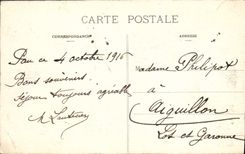 CARTE POSTALE
CORRESPONDANCE
ADRESSE
Pau ce 4 octobre 1916
Bons souvenirs.
Séjour toujours agréable
Madame Philipot
à
Aiguillon
Lot et Garonne